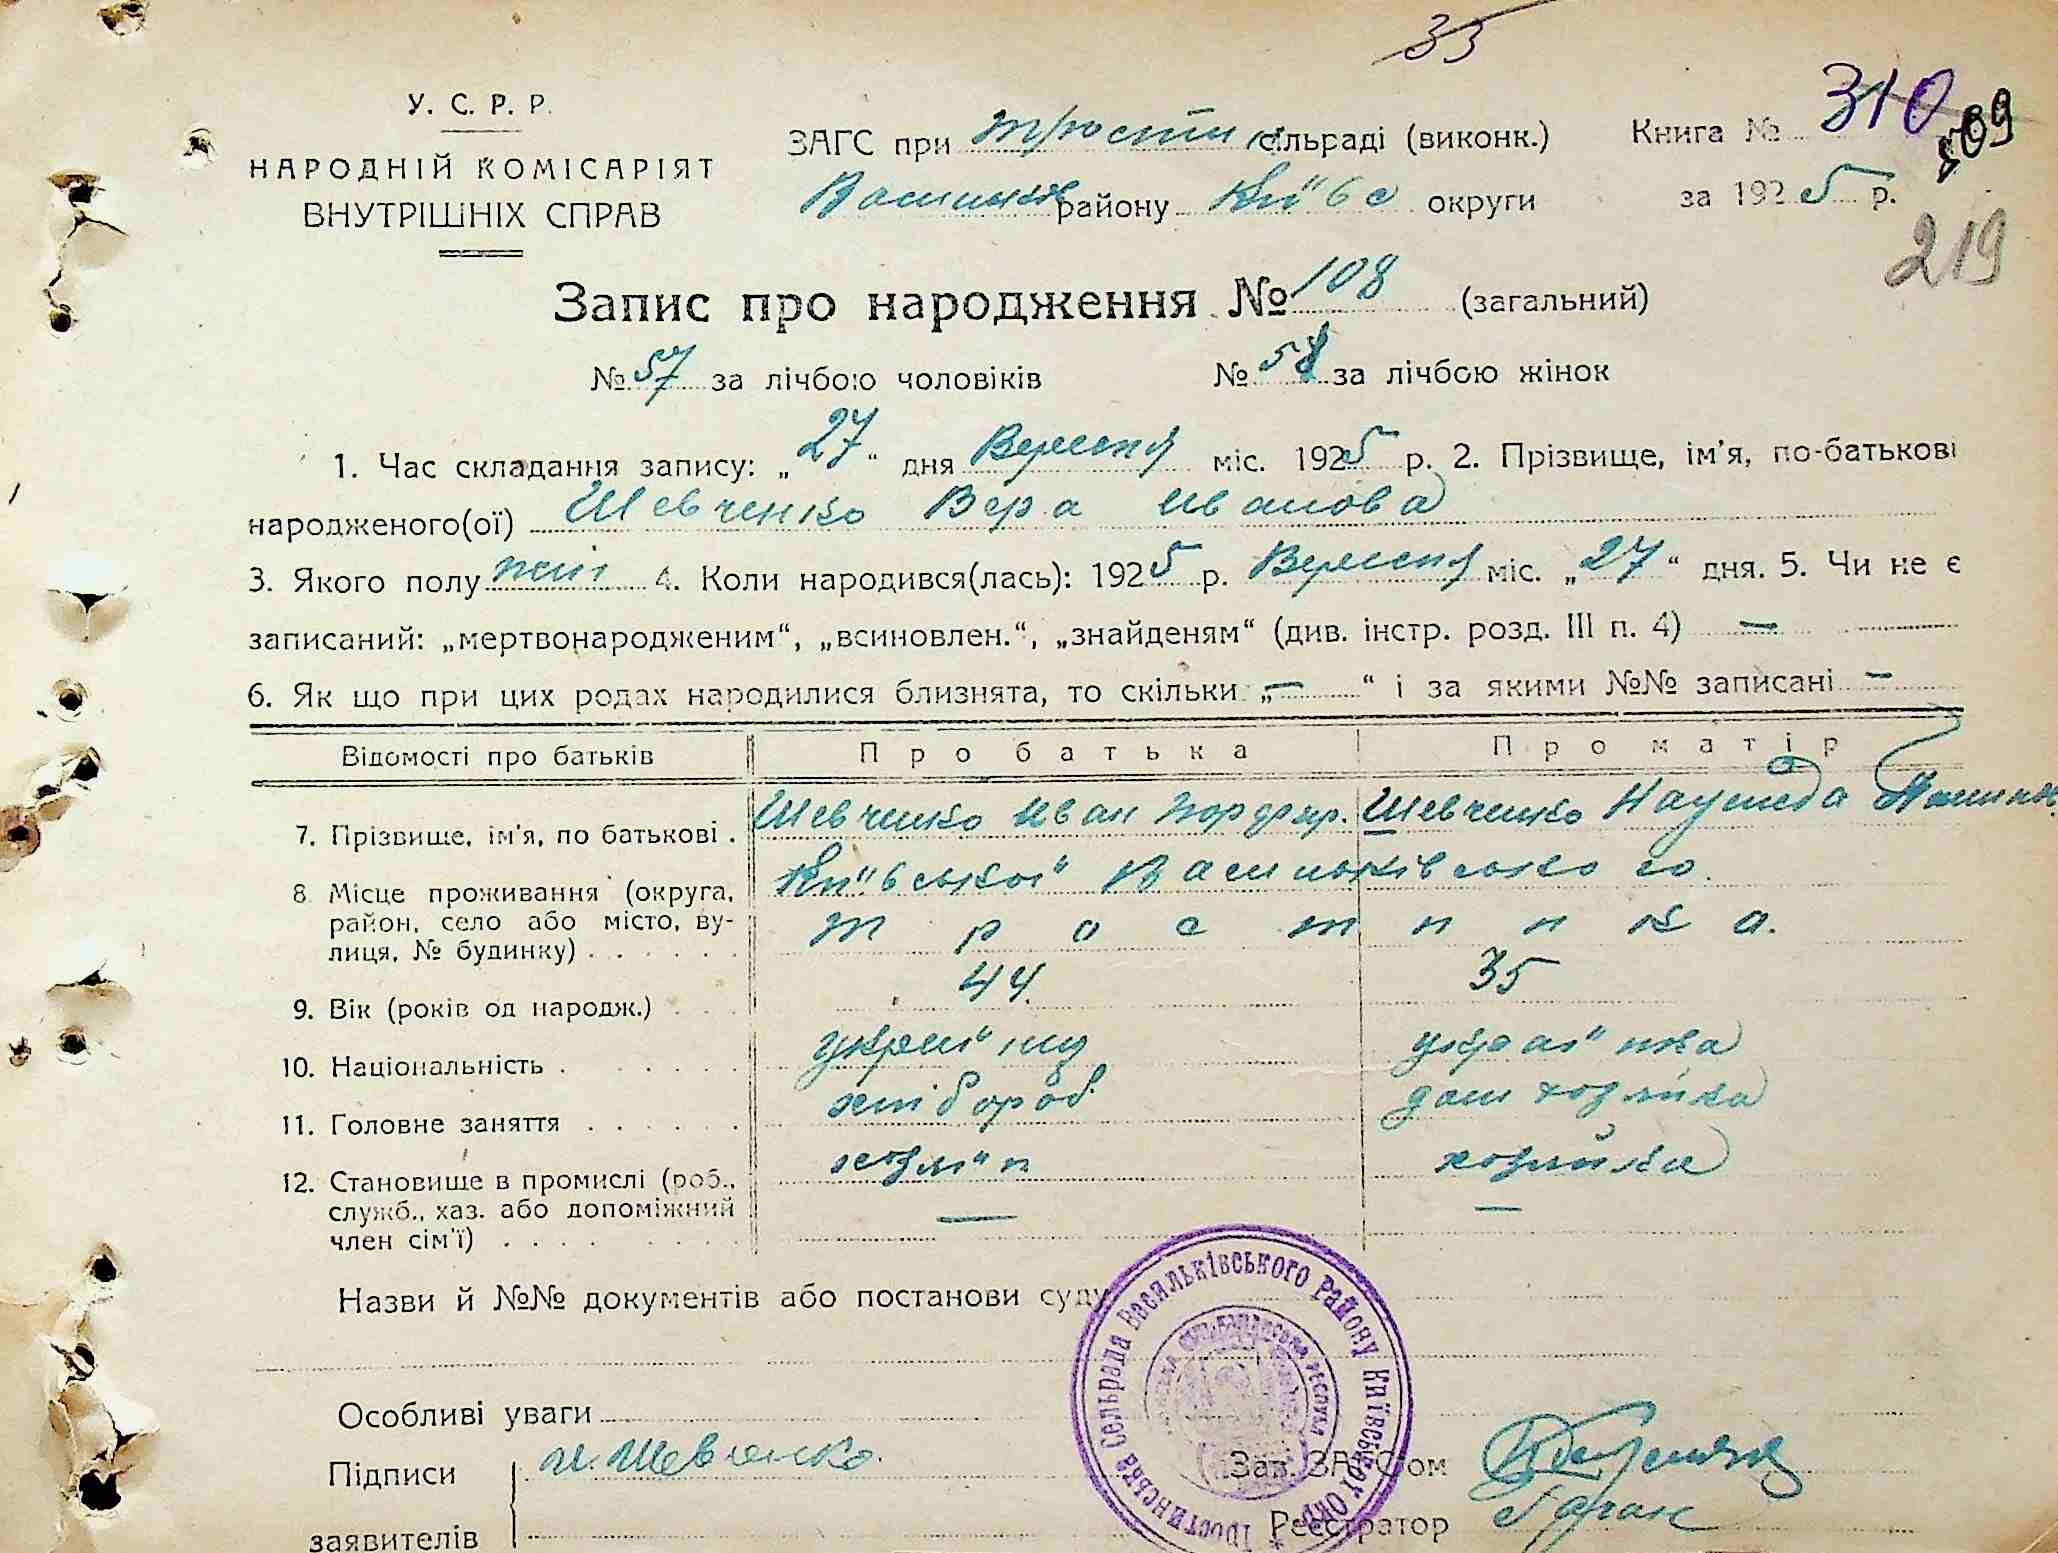 33
У. С. Р. Р.
НАРОДНІЙ КОМІСАРІЯТ
ВНУТРІШНІХ СПРАВ
ЗАГС при Трости сільраді (виконк.)
Васильк району Київс округи
Книга № 310
509
за 1925 р.
219
Запис про народження № 108 (загальний)
№ 57 за лічбою чоловіків № 51 за лічбою жінок
1. Час складання запису: „27“ дня Вересня міс. 1925 р. 2. Прізвище, ім'я, по-батькові
народженого(ої) Шевченко Вера Иванова
3. Якого полу жін 4. Коли народився(лась): 1925 р. Вересня міс. „27“ дня. 5. Чи не є
записаний: „мертвонародженим“, „всиновлен.“, „знайденям“ (див. інстр. розд. III п. 4) —
6. Як що при цих родах народилися близнята, то скільки „—“ і за якими №№ записані —
Відомості про батьків Про батька Про матір
7. Прізвище, ім'я, по батькові . Шевченко Иван Порфир. Шевченко Надежда
8 Місце проживання (округа, Київської Васильківського
район, село або місто, ву- Тростинка.
лиця, № будинку) . . . . . .
9. Вік (років од народж.) . . . 44 35
10. Національність . . . . . . україниц українка
11. Головне заняття . . . . . . хлібороб. дом хозяйка
12. Становище в промислі (роб., хозяїн хозяйка
служб., хаз. або допоміжний — —
член сім'ї) . . . . . . . .
Назви й №№ документів або постанови суду
Особливі уваги
Підписи И. Шевченко.
заявителів
Зав. ЗАГС'ом
Реєстратор
* Тростинська Сельрада Васильківського Району Київської Окр